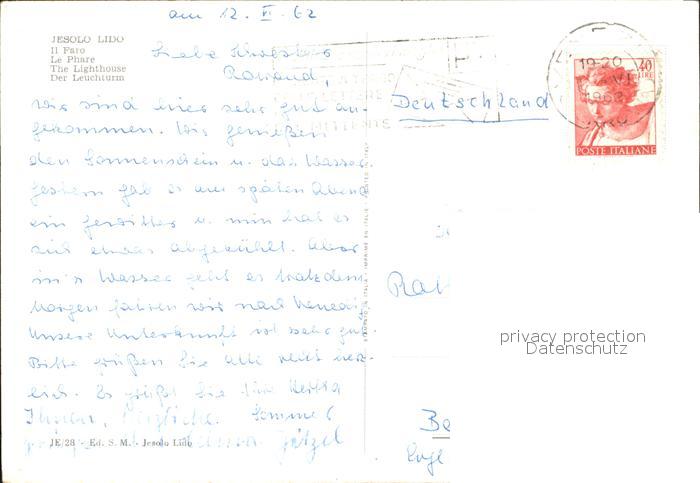 am 12. VI. 62
JESOLO LIDO
Il Faro
Le Phare
The Lighthouse
Der Leuchturm
Liebe Schwester
wir sind hier sehr gut an-
gekommen. Wir genießen
den Sonnenschein u. das Wasser
gestern gab es am späten Abend
ein Gewitter u. nun hat es
sich etwas abgekühlt. Aber
in's Wasser geht es trotzdem
Morgen fahren wir nach Venedi
Unsere Unterkunft ist sehr gut
Bitte grüßen Sie alle recht herz-
lich. Es grüßt Sie
Herzliche Sommer
JE/28 - Ed. S. M. - Jesolo Lido
Deutschland
19-20
1962
40
LIRE
POSTE ITALIANE
privacy protection
Datenschutz